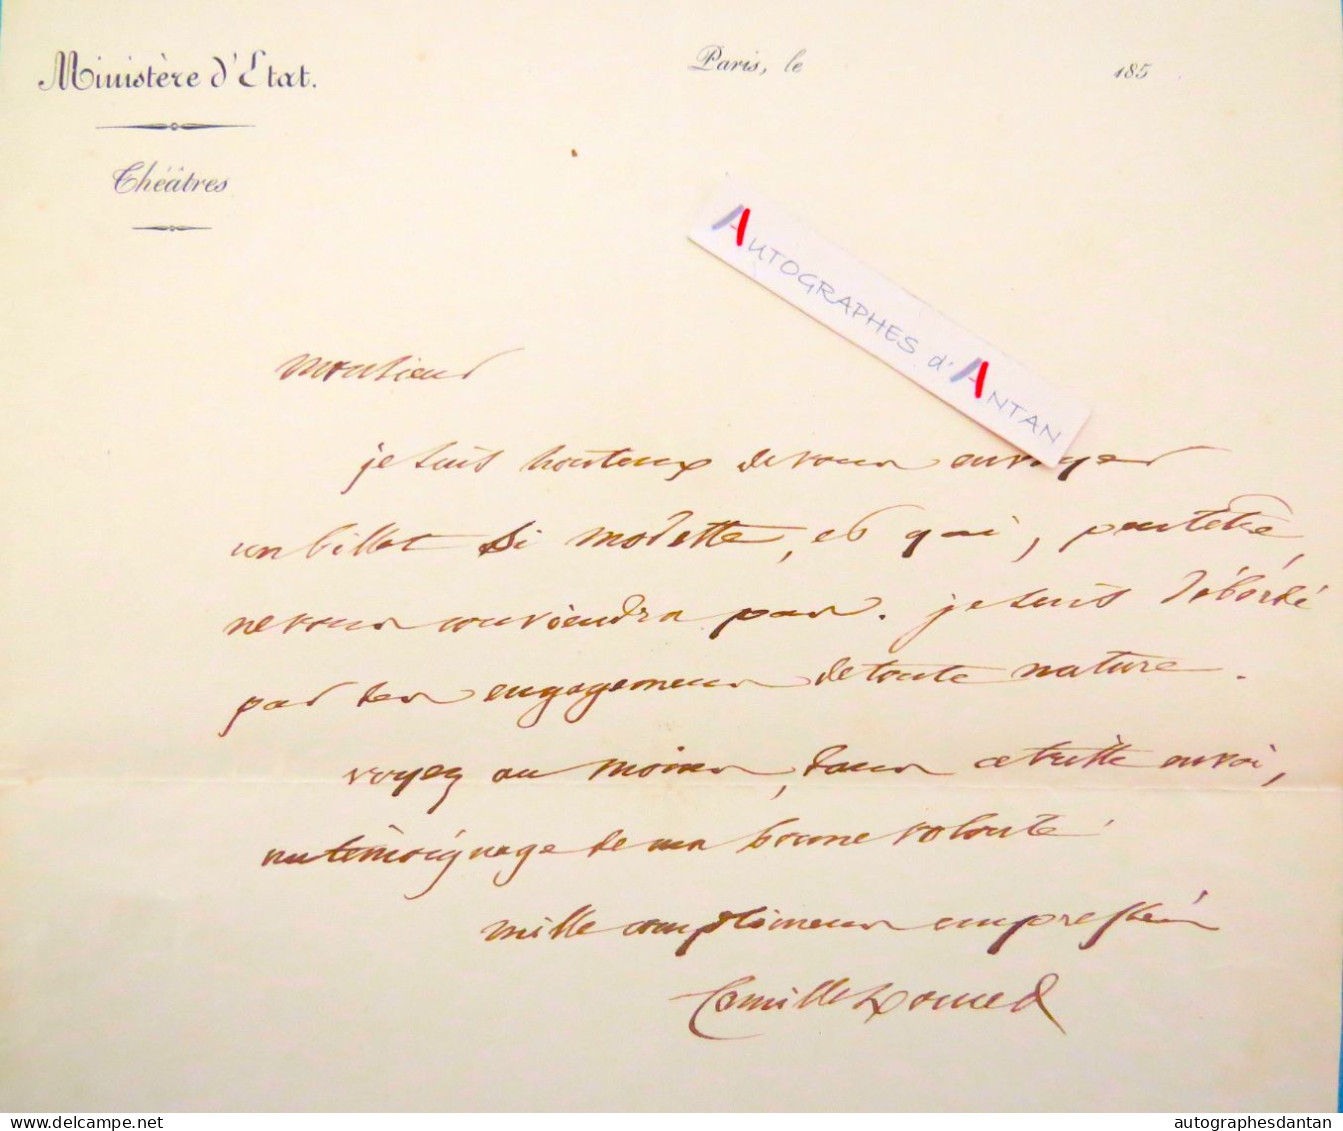 Ministère d'Etat.
Paris, le 185
Théâtres
AUTOGRAPHES d'ANTAN
Monsieur
je suis honteux de vous envoyer
un billet si modeste, et qui, peut être,
ne vous conviendra pas. je suis débordé
par des engagemens de toute nature.
voyez au moins, dans ce triste envoi,
un témoignage de ma bonne volonté.
mille complimens empressés
Camille Doucet
delcampe.net
autographesdantan